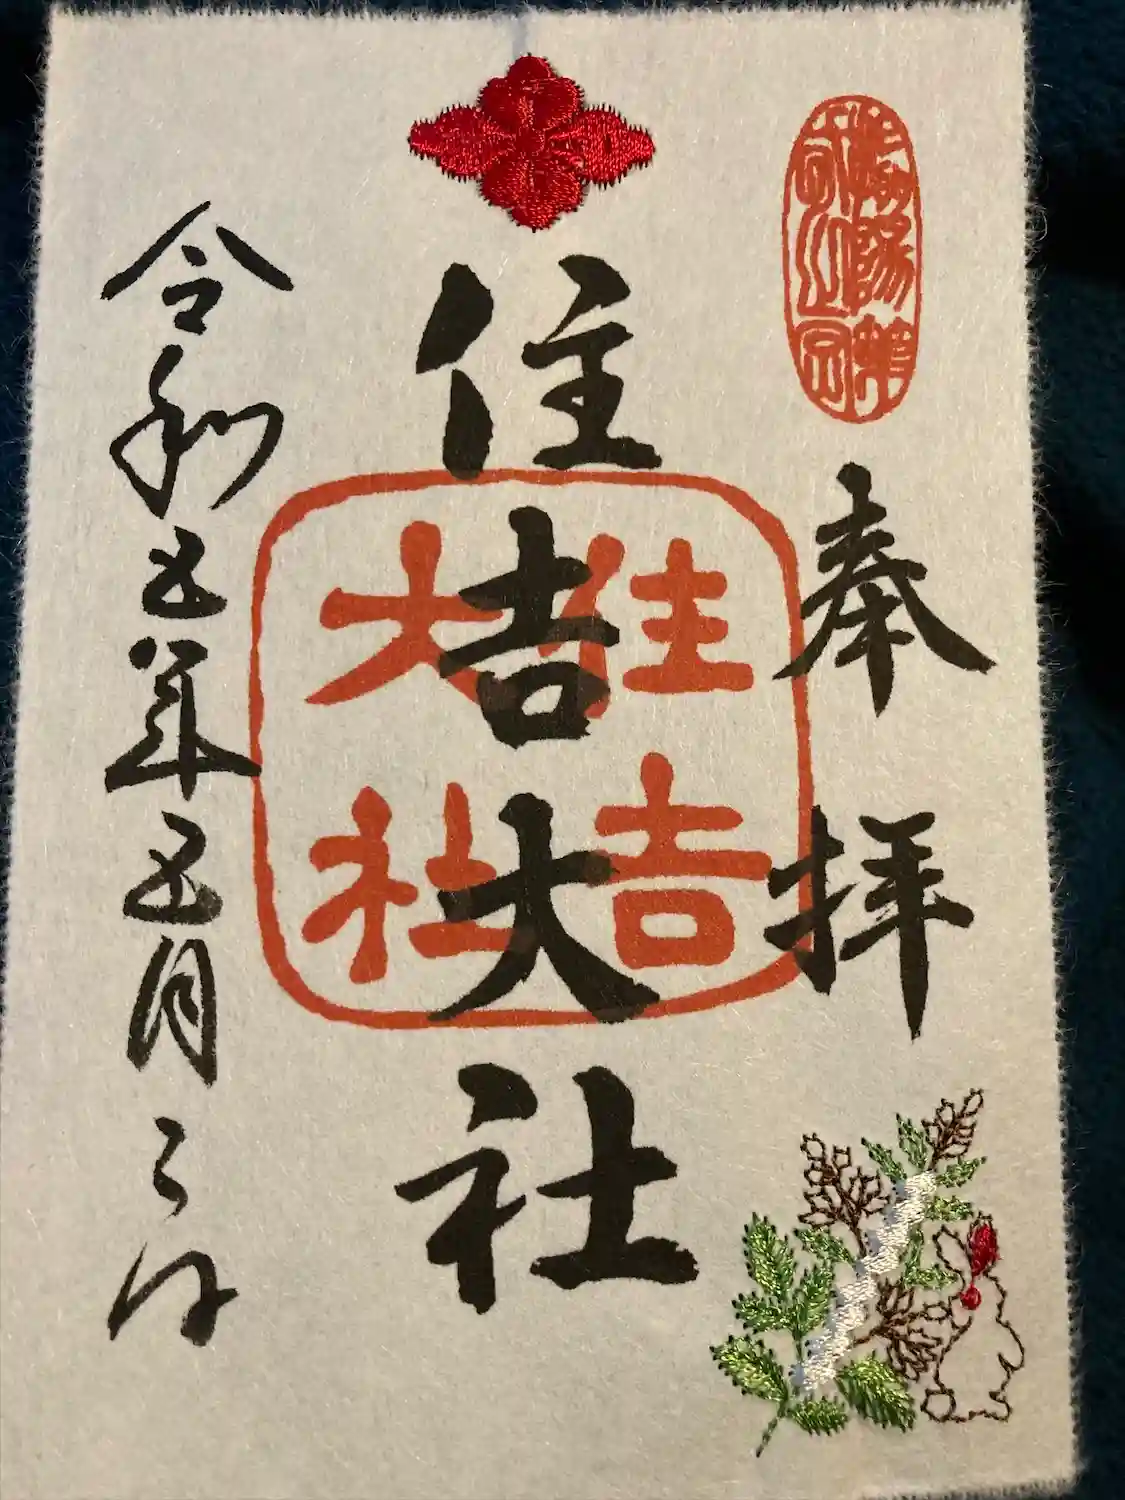 奉拝
住吉大社
住吉
大社
令和五年五月三日